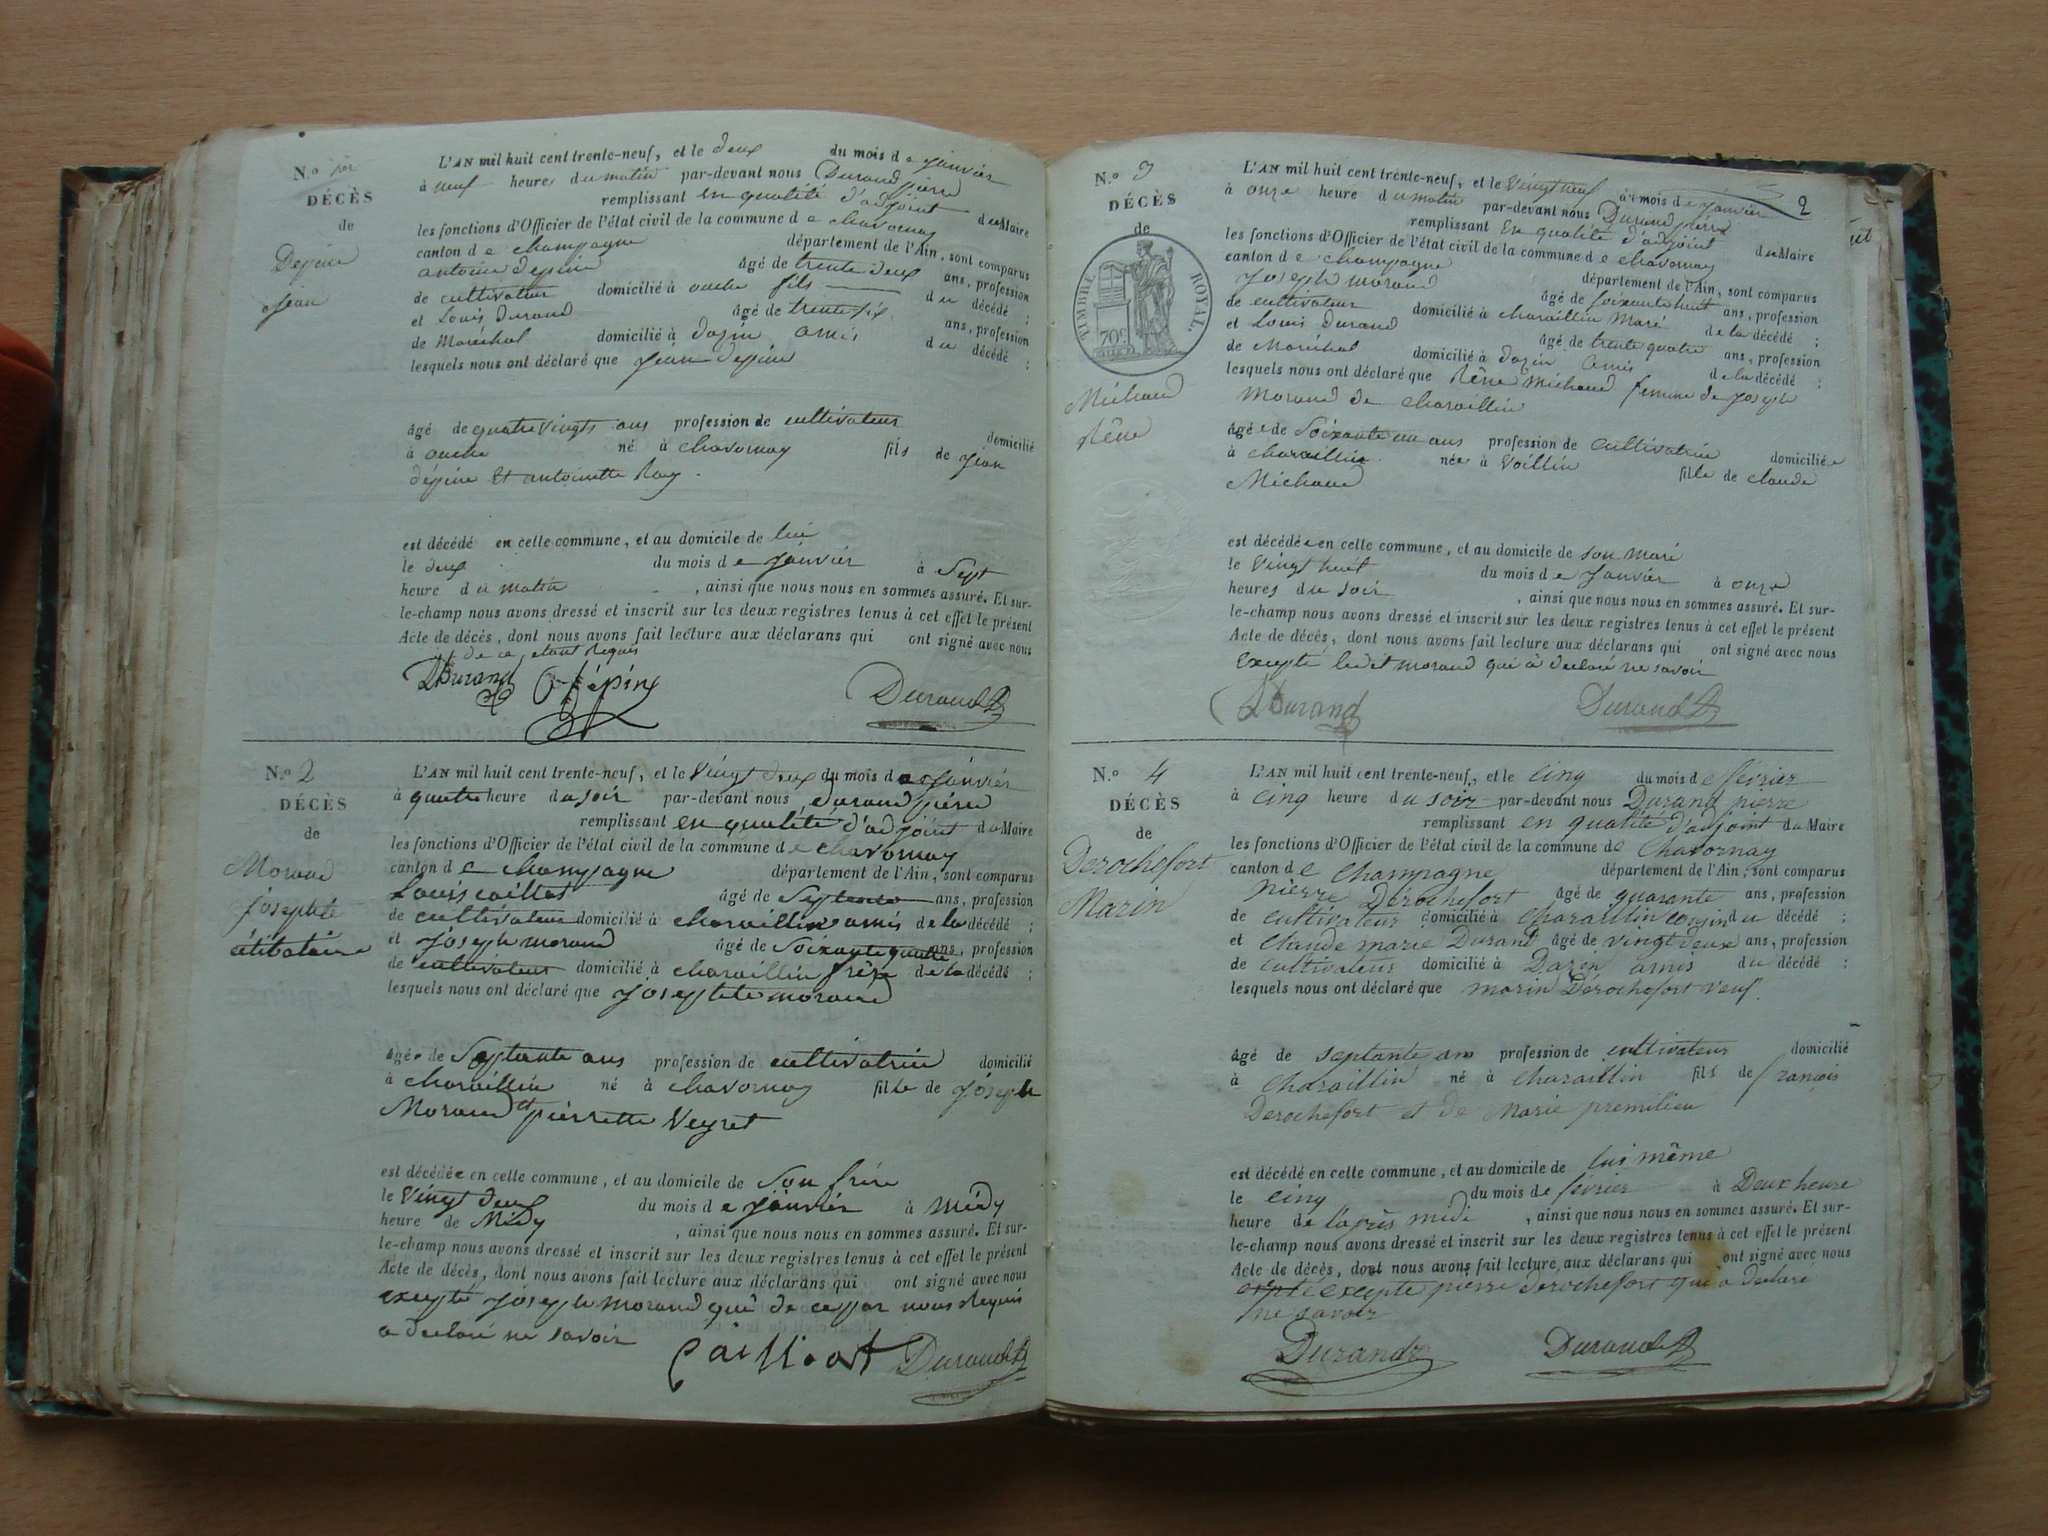 N.o 1er
DÉCÈS
de
Depine
Jean
L'AN mil huit cent trente-neuf, et le deux du mois de janvier
à neuf heures du matin par-devant nous Durand pierre
remplissant en qualité d'adjoint du Maire
les fonctions d'Officier de l'état civil de la commune de chavornay
canton de champagne département de l'Ain, sont comparus
antoine depine âgé de trente deux ans, profession
de cultivateur domicilié à ouche fils du décédé ;
et Louis durand âgé de trente-six ans, profession
de Maréchal domicilié à dazin amis du décédé ;
lesquels nous ont déclaré que jean depine
âgé de quatre vingts ans profession de cultivateur domicilié
à ouche né à chavornay fils de jean
dépine et antoinette Ray.
est décédé en cette commune, et au domicile de lui
le deux du mois de janvier à sept
heure du matin , ainsi que nous nous en sommes assuré. Et sur-
le-champ nous avons dressé et inscrit sur les deux registres tenus à cet effet le présent
Acte de décès, dont nous avons fait lecture aux déclarans qui ont signé avec nous
de ce etant Requis
LDurand Dépine Durand
N.o 2
DÉCÈS
de
Morand
josephte
célibataire
L'AN mil huit cent trente-neuf, et le vingt deux du mois de janvier
à quatre heure du soir par-devant nous durand piérre
remplissant en qualité d'adjoint du Maire
les fonctions d'Officier de l'état civil de la commune de chavornay
canton de champagne département de l'Ain, sont comparus
Louis caillot âgé de septente ans, profession
de cultivateur domicilié à charaillin amis de la décédé ;
et joseph morand âgé de soixante quatre ans, profession
de cultivateur domicilié à charaillin frère de la décédé ;
lesquels nous ont déclaré que josephte morand
âgée de septante ans profession de cultivatrice domicilié
à charaillin né à chavornay fille de joseph
Morand et piérrette Veyret
est décédée en cette commune, et au domicile de son frére
le vingt deux du mois de janvier à midy
heure de Midy , ainsi que nous nous en sommes assuré. Et sur-
le-champ nous avons dressé et inscrit sur les deux registres tenus à cet effet le présent
Acte de décès, dont nous avons fait lecture aux déclarans qui ont signé avec nous
excepté joseph morand qui de ce par nous Requis
a declaré ne savoir
Cailliot Durand
2
N.o 3
DÉCÈS
de
TIMBRE ROYAL.
70c
Michaud
Rêne
L'AN mil huit cent trente-neuf, et le vingt neuf du mois de janvier
à onze heure du matin par-devant nous Durand pierre
remplissant en qualité d'adjoint du Maire
les fonctions d'Officier de l'état civil de la commune de chavornay
canton de champagne département de l'Ain, sont comparus
joseph morand âgé de soixante huit ans, profession
de cultivateur domicilié à charaillin Maré de la décédé ;
et Louis durand âgé de trente quatre ans, profession
de Maréchal domicilié à dazin amis de la décédé ;
lesquels nous ont déclaré que Rêne Michaud femme de joseph
Morand de charaillin
âgée de soixante un ans profession de cultivatrice domiciliée
à charaillin née à Voillin fille de claude
Michaud
est décédée en cette commune, et au domicile de son maré
le vingt huit du mois de janvier à onze
heures du soir , ainsi que nous nous en sommes assuré. Et sur-
le-champ nous avons dressé et inscrit sur les deux registres tenus à cet effet le présent
Acte de décès, dont nous avons fait lecture aux déclarans qui ont signé avec nous
excepté ledit morand qui à declaré ne savoir
LDurand Durand
N.o 4
DÉCÈS
de
Derochefort
Marin
L'AN mil huit cent trente-neuf, et le cinq du mois de février
à cinq heure du soir par-devant nous Durand pierre
remplissant en qualité d'adjoint du Maire
les fonctions d'Officier de l'état civil de la commune de Chavornay
canton de Champagne département de l'Ain, sont comparus
Pierre Dérochefort âgé de quarante ans, profession
de cultivateur domicilié à charaillin cousin du décédé ;
et claude marie Durant âgé de vingt deux ans, profession
de cultivateur domicilié à Dazin amis du décédé ;
lesquels nous ont déclaré que marin Dérochefort veuf
âgé de septante ans profession de cultivateur domicilié
à charaillin né à charaillin fils de françois
Derochefort et de Marie premilieu
est décédé en cette commune, et au domicile de lui même
le cinq du mois de février à Deux heure
heure de l'après midi , ainsi que nous nous en sommes assuré. Et sur-
le-champ nous avons dressé et inscrit sur les deux registres tenus à cet effet le présent
Acte de décès, dont nous avons fait lecture aux déclarans qui ont signé avec nous
excepte pierre derochefort qui a declaré
ne savoir
Durand Durand